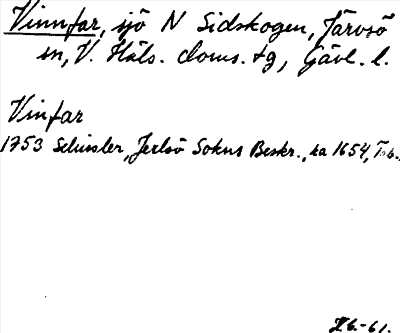 Vinnfar, sjö N Sidskogen, Järvsö
sn, V. Häls. doms. tg, Gävl. l.
Vinfar
1753 Schissler, Jerlsö Sokns Beskr., ka 1654,